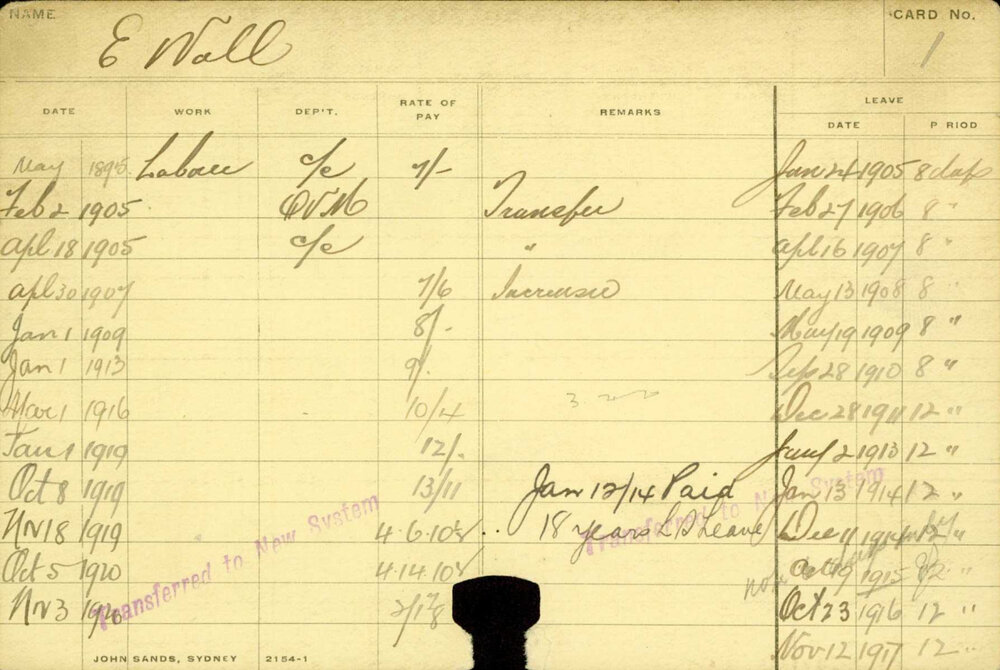 NAME E Wall CARD No. 1
LEAVE
DATE WORK DEP'T. RATE OF PAY REMARKS DATE P RIOD
May 1895 Labour c/e 7/- Jan 24 1905 8 days
Feb 2 1905 QVM Transfer Feb 27 1906 8 "
Apl 18 1905 c/e " Apl 16 1907 8 "
Apl 30 1907 7/6 Increase May 13 1908 8 "
Jan 1 1909 8/- May 19 1909 8 "
Jan 1 1913 9/- Sep 28 1910 8 "
Mar 1 1916 10/4 Dec 28 1911 12 "
Jan 1 1919 12/- Jany 2 1913 12 "
Oct 8 1919 13/11 Jan 12/14 Paid Jan 13 1914 12 "
Nv 18 1919 4-6-10½ 18 years L S Leave Dec 11 1914 12 "
Oct 5 1920 4-14-10½ not 1915 12 "
Nv 3 1920 Oct 23 1916 12 "
Nov 12 1917 12 "
Transferred to New System
Transferred to New System
JOHN SANDS, SYDNEY 2154-1